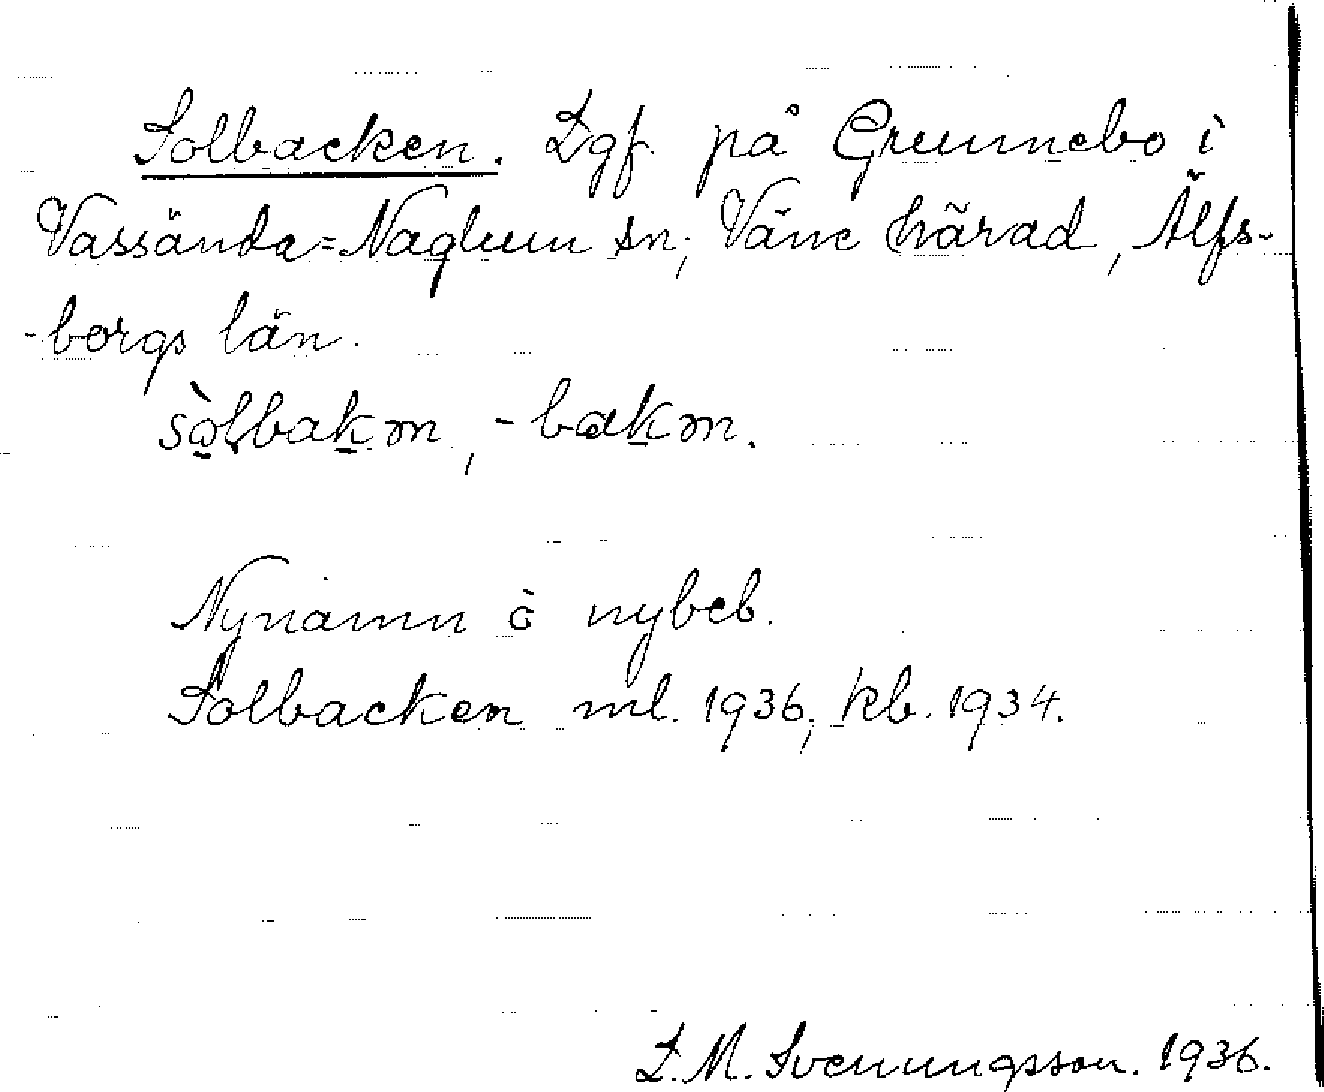 Solbacken. Lgf. på Grunnebo i
Vassända=Naglum sn, Väne härad, Älfs-
-borgs län.
sò̱lbaḵm, -bakm.
Nynamn å nybeb.
Solbacken ml. 1936, kb. 1934.
L. M. Svenungsson. 1936.